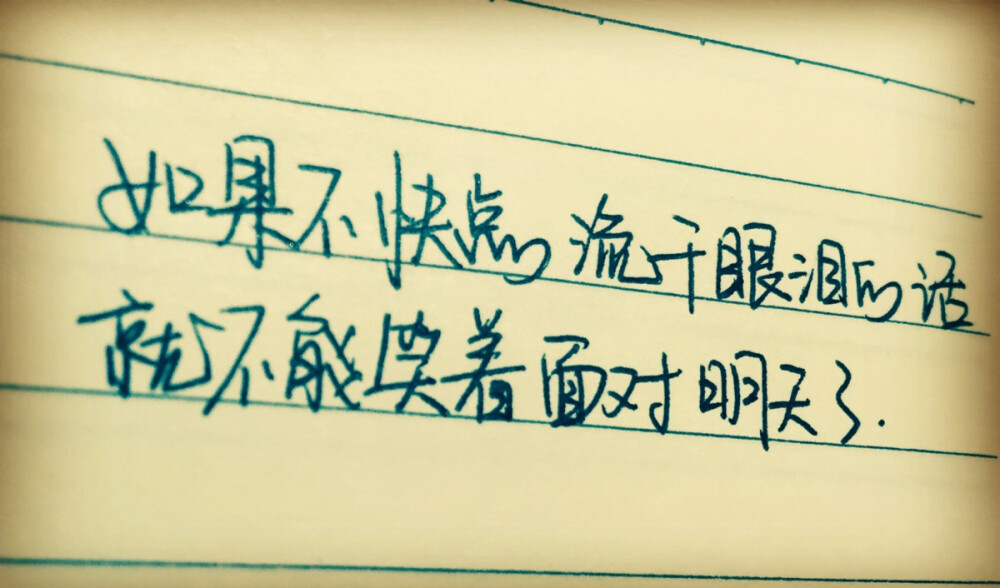 如果不快点流干眼泪的话
就不能笑着面对明天了.